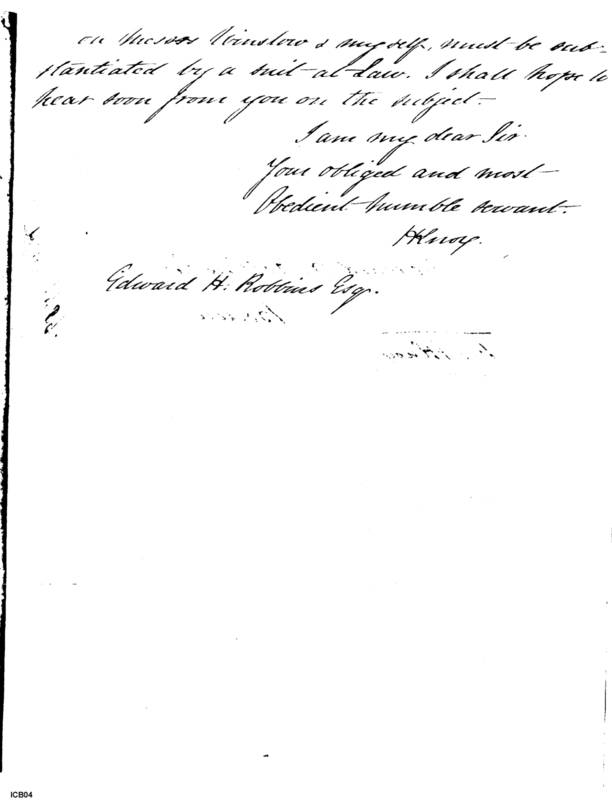 on Messrs Winslow & myself, must be sub-
stantiated by a suit at Law. I shall hope to
hear soon from you on the subject-
I am my dear Sir.
Your obliged and most
Obedient humble servant.
HKnox.
Edward H. Robbins Esqr.
ICB04